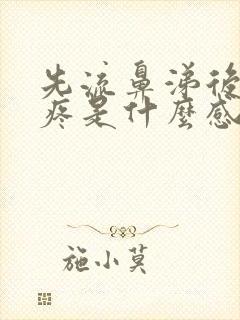 先流鼻涕後
疼是什麼感
施小莫